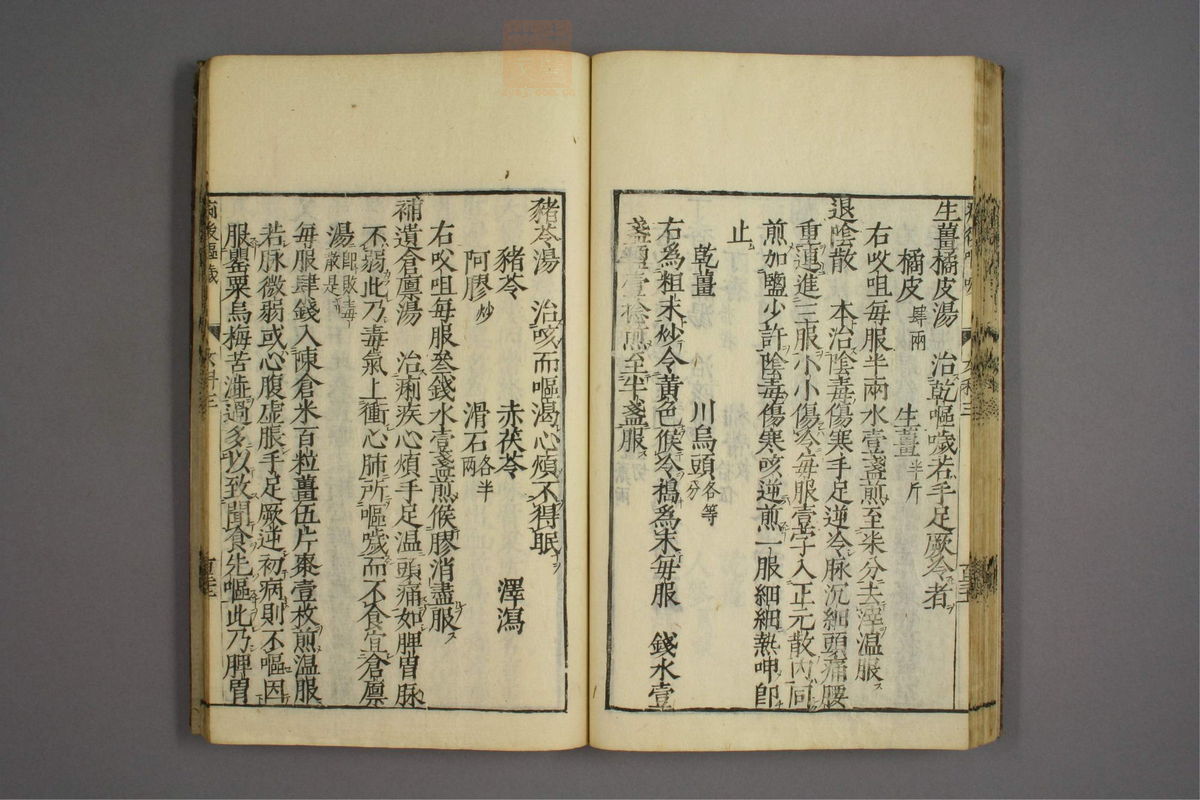 生薑橘皮湯 治乾嘔噦若手足厥冷者
橘皮肆兩 生薑半斤
右㕮咀每服半兩水壹盞煎至柒分去滓温服
退陰散 本治陰毒傷寒手足逆冷脉沉細頭痛腰
重連進三服小小傷冷每服壹字入正元散內同
煎加鹽少許陰毒傷寒咳逆煎一服細細熱呷卽
止
乾薑 川烏頭各等分
右爲粗末炒令黃色候冷搗爲末每服 錢水壹
盞鹽壹捻煎至半盞服
豬苓湯 治咳而嘔渴心煩不得眠
豬苓 赤茯苓 澤瀉
阿膠炒 滑石各半兩
右㕮咀每服叁錢水壹盞煎候膠消盡服
補遺倉廩湯 治痢疾心煩手足温頭痛如脾胃脉
不弱此乃毒氣上衝心肺所嘔噦而不食宜倉廩
湯卽敗毒散是
每服肆錢入陳倉米百粒薑伍片棗壹枚煎温服
若脉微弱或心腹虛脹手足厥逆初病則不嘔因
服罌粟烏梅苦澁過多以致聞食先嘔此乃脾胃